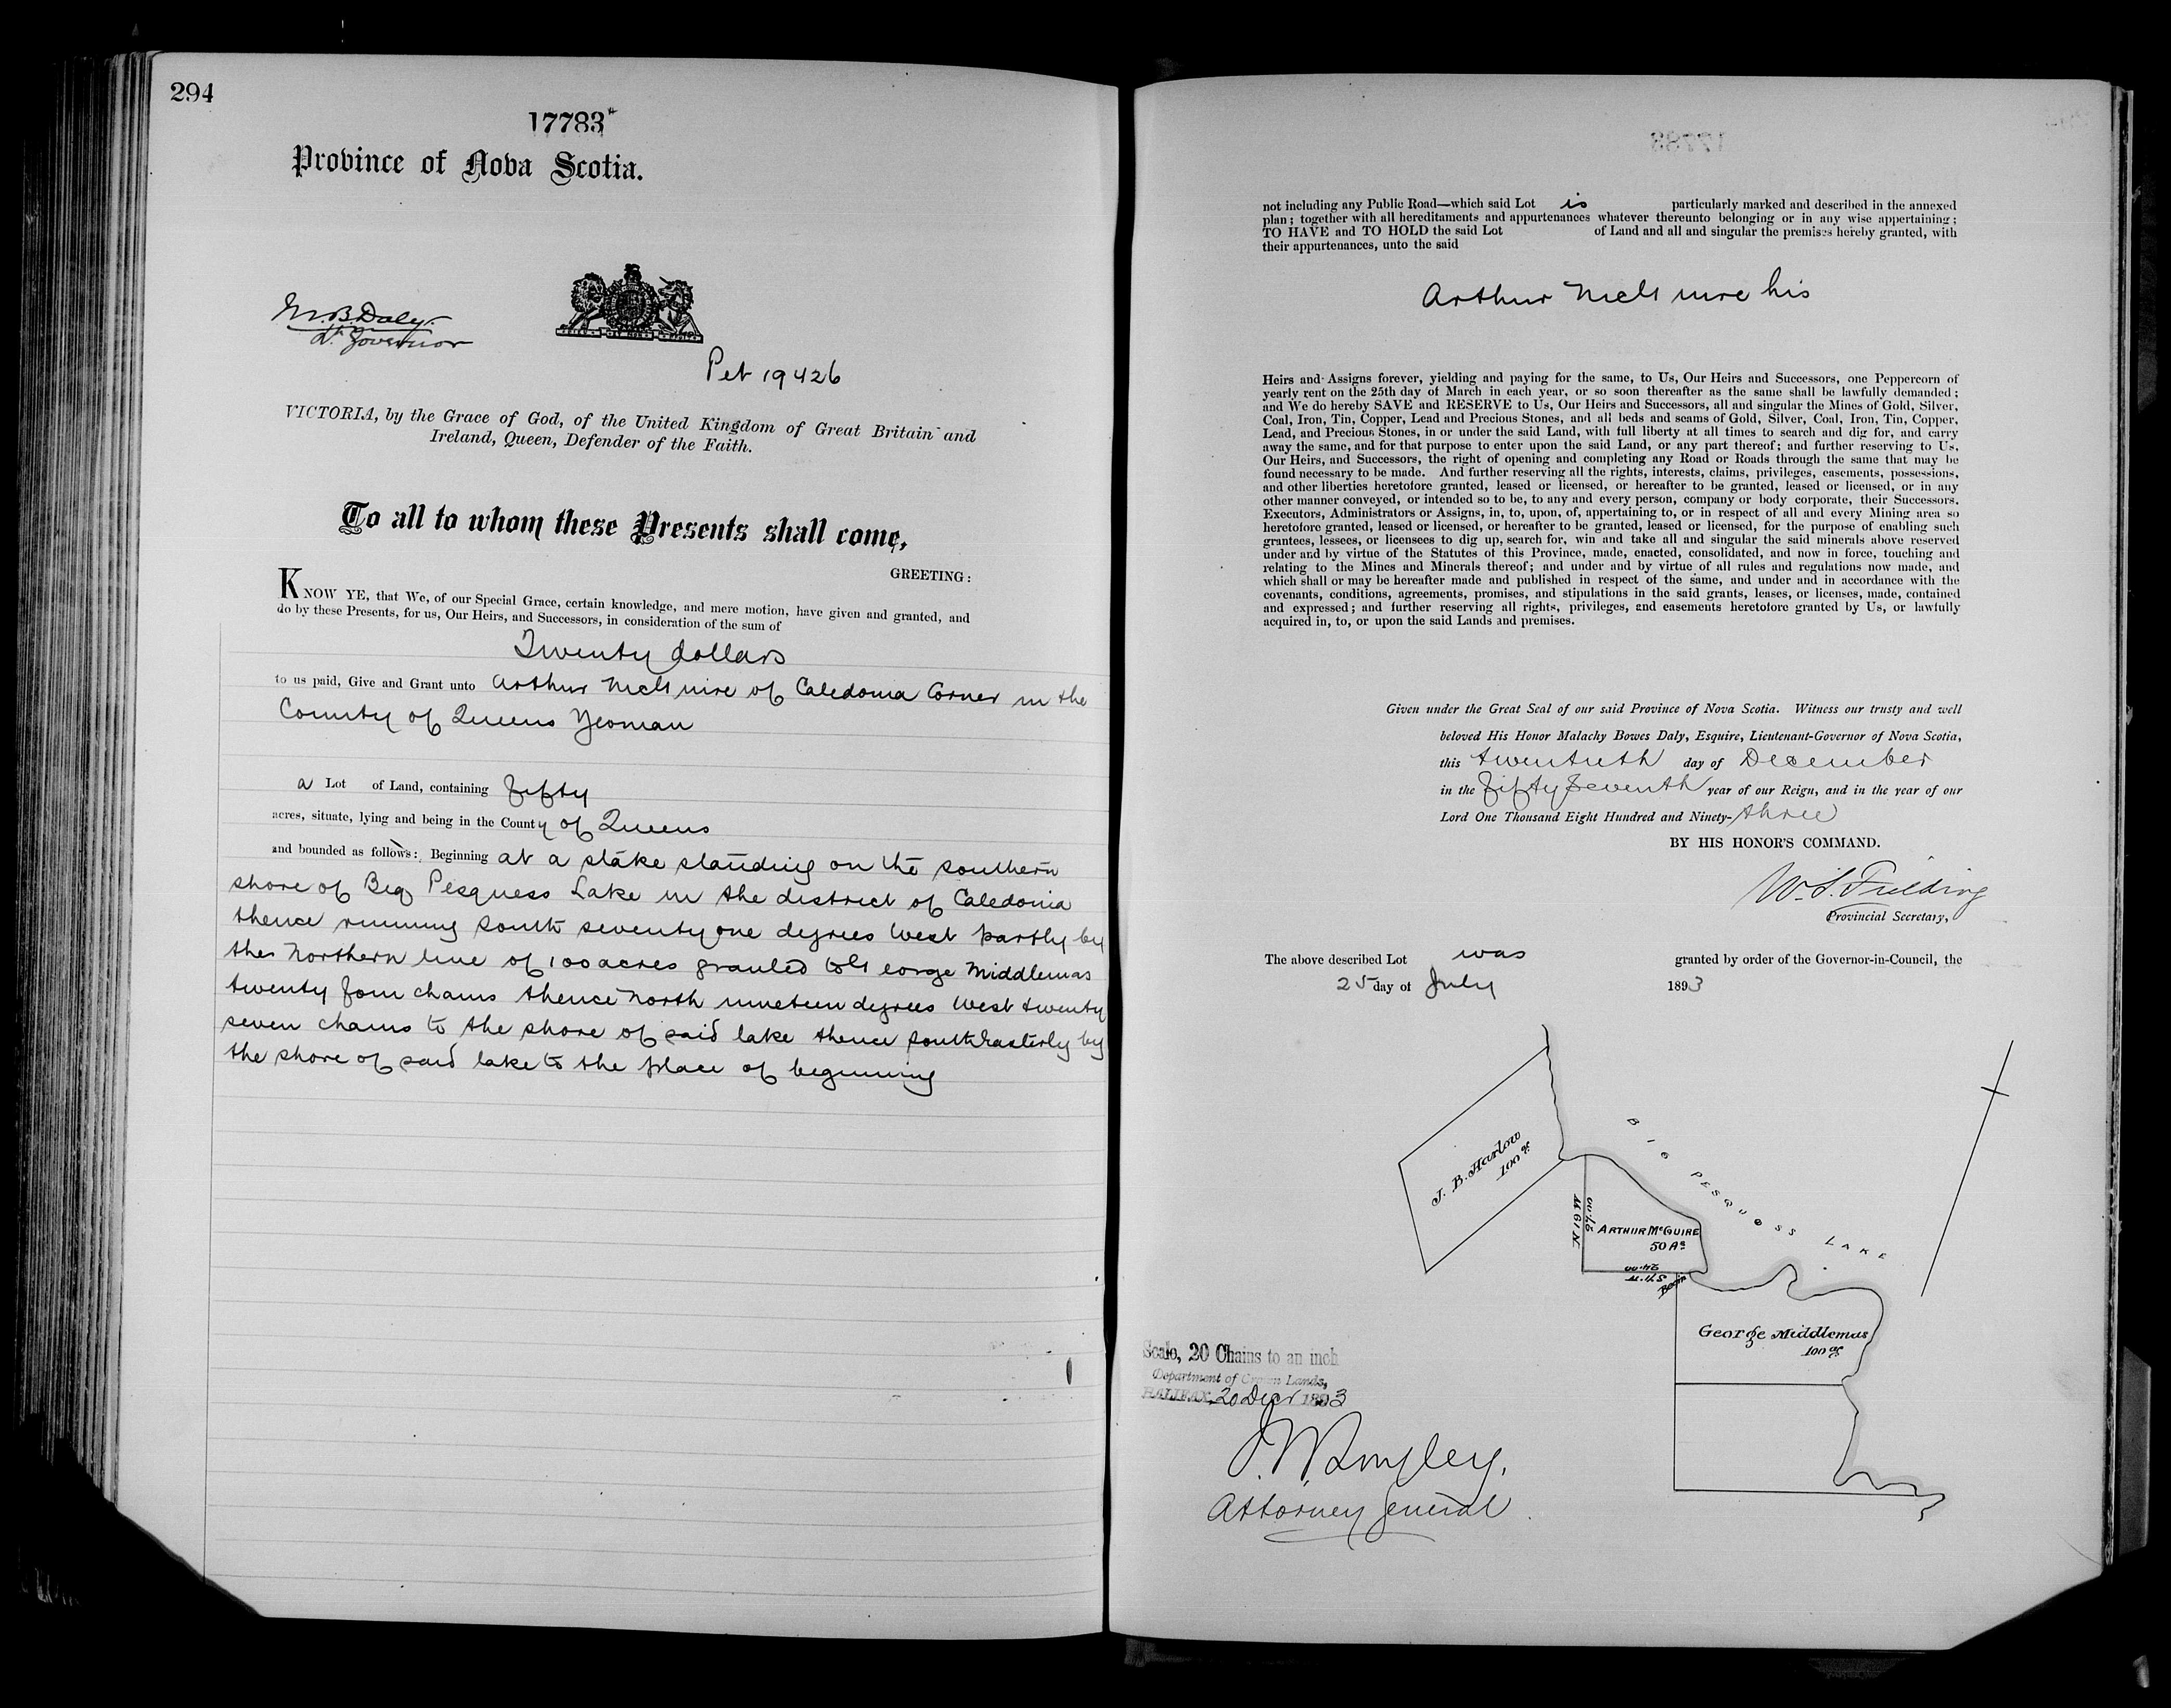 294
17783
Province of Nova Scotia.
M.B. Daly.
Lt. Governor
Pet 19426
VICTORIA, by the Grace of God, of the United Kingdom of Great Britain and
Ireland, Queen, Defender of the Faith.
To all to whom these Presents shall come,
GREETING:
KNOW YE, that We, of our Special Grace, certain knowledge, and mere motion, have given and granted, and
do by these Presents, for us, Our Heirs, and Successors, in consideration of the sum of
Twenty dollars
to us paid, Give and Grant unto Arthur McGuire of Caledonia Corner in the
County of Queens Yeoman
a Lot of Land, containing fifty
acres, situate, lying and being in the County of Queens
and bounded as follows: Beginning at a stake standing on the southern
shore of Big Pesquess Lake in the district of Caledonia
thence running south seventy one degrees West partly by
the Northern line of 100 acres granted to George Middlemas
twenty four chains thence North nineteen degrees West twenty
seven chains to the shore of said lake thence southEasterly by
the shore of said lake to the place of beginning
not including any Public Road—which said Lot is particularly marked and described in the annexed
plan; together with all hereditaments and appurtenances whatever thereunto belonging or in any wise appertaining;
TO HAVE and TO HOLD the said Lot of Land and all and singular the premises hereby granted, with
their appurtenances, unto the said
Arthur McGuire his
Heirs and Assigns forever, yielding and paying for the same, to Us, Our Heirs and Successors, one Peppercorn of
yearly rent on the 25th day of March in each year, or so soon thereafter as the same shall be lawfully demanded;
and We do hereby SAVE and RESERVE to Us, Our Heirs and Successors, all and singular the Mines of Gold, Silver,
Coal, Iron, Tin, Copper, Lead and Precious Stones, and all beds and seams of Gold, Silver, Coal, Iron, Tin, Copper,
Lead, and Precious Stones, in or under the said Land, with full liberty at all times to search and dig for, and carry
away the same, and for that purpose to enter upon the said Land, or any part thereof; and further reserving to Us,
Our Heirs, and Successors, the right of opening and completing any Road or Roads through the same that may be
found necessary to be made. And further reserving all the rights, interests, claims, privileges, easements, possessions,
and other liberties heretofore granted, leased or licensed, or hereafter to be granted, leased or licensed, or in any
other manner conveyed, or intended so to be, to any and every person, company or body corporate, their Successors,
Executors, Administrators or Assigns, in, to, upon, of, appertaining to, or in respect of all and every Mining area so
heretofore granted, leased or licensed, or hereafter to be granted, leased or licensed, for the purpose of enabling such
grantees, lessees, or licensees to dig up, search for, win and take all and singular the said minerals above reserved
under and by virtue of the Statutes of this Province, made, enacted, consolidated, and now in force, touching and
relating to the Mines and Minerals thereof; and under and by virtue of all rules and regulations now made, and
which shall or may be hereafter made and published in respect of the same, and under and in accordance with the
covenants, conditions, agreements, promises, and stipulations in the said grants, leases, or licenses, made, contained
and expressed; and further reserving all rights, privileges, and easements heretofore granted by Us, or lawfully
acquired in, to, or upon the said Lands and premises.
Given under the Great Seal of our said Province of Nova Scotia. Witness our trusty and well
beloved His Honor Malachy Bowes Daly, Esquire, Lieutenant-Governor of Nova Scotia,
this twentieth day of December
in the fifty seventh year of our Reign, and in the year of our
Lord One Thousand Eight Hundred and Ninety-three
BY HIS HONOR'S COMMAND.
W.S. Fielding
Provincial Secretary,
The above described Lot was granted by order of the Governor-in-Council, the
25 day of July 1893
BIG PESQUESS LAKE
J. B. Harlow
100 ac
N 19 W
27.00
ARTHUR McGUIRE
50 Ac
24.00
S 71 W
Begin
George Middlemas
100 ac
Scale, 20 Chains to an inch
Department of Crown Lands,
HALIFAX, 20 Decr 1893
J.W. Longley,
Attorney General